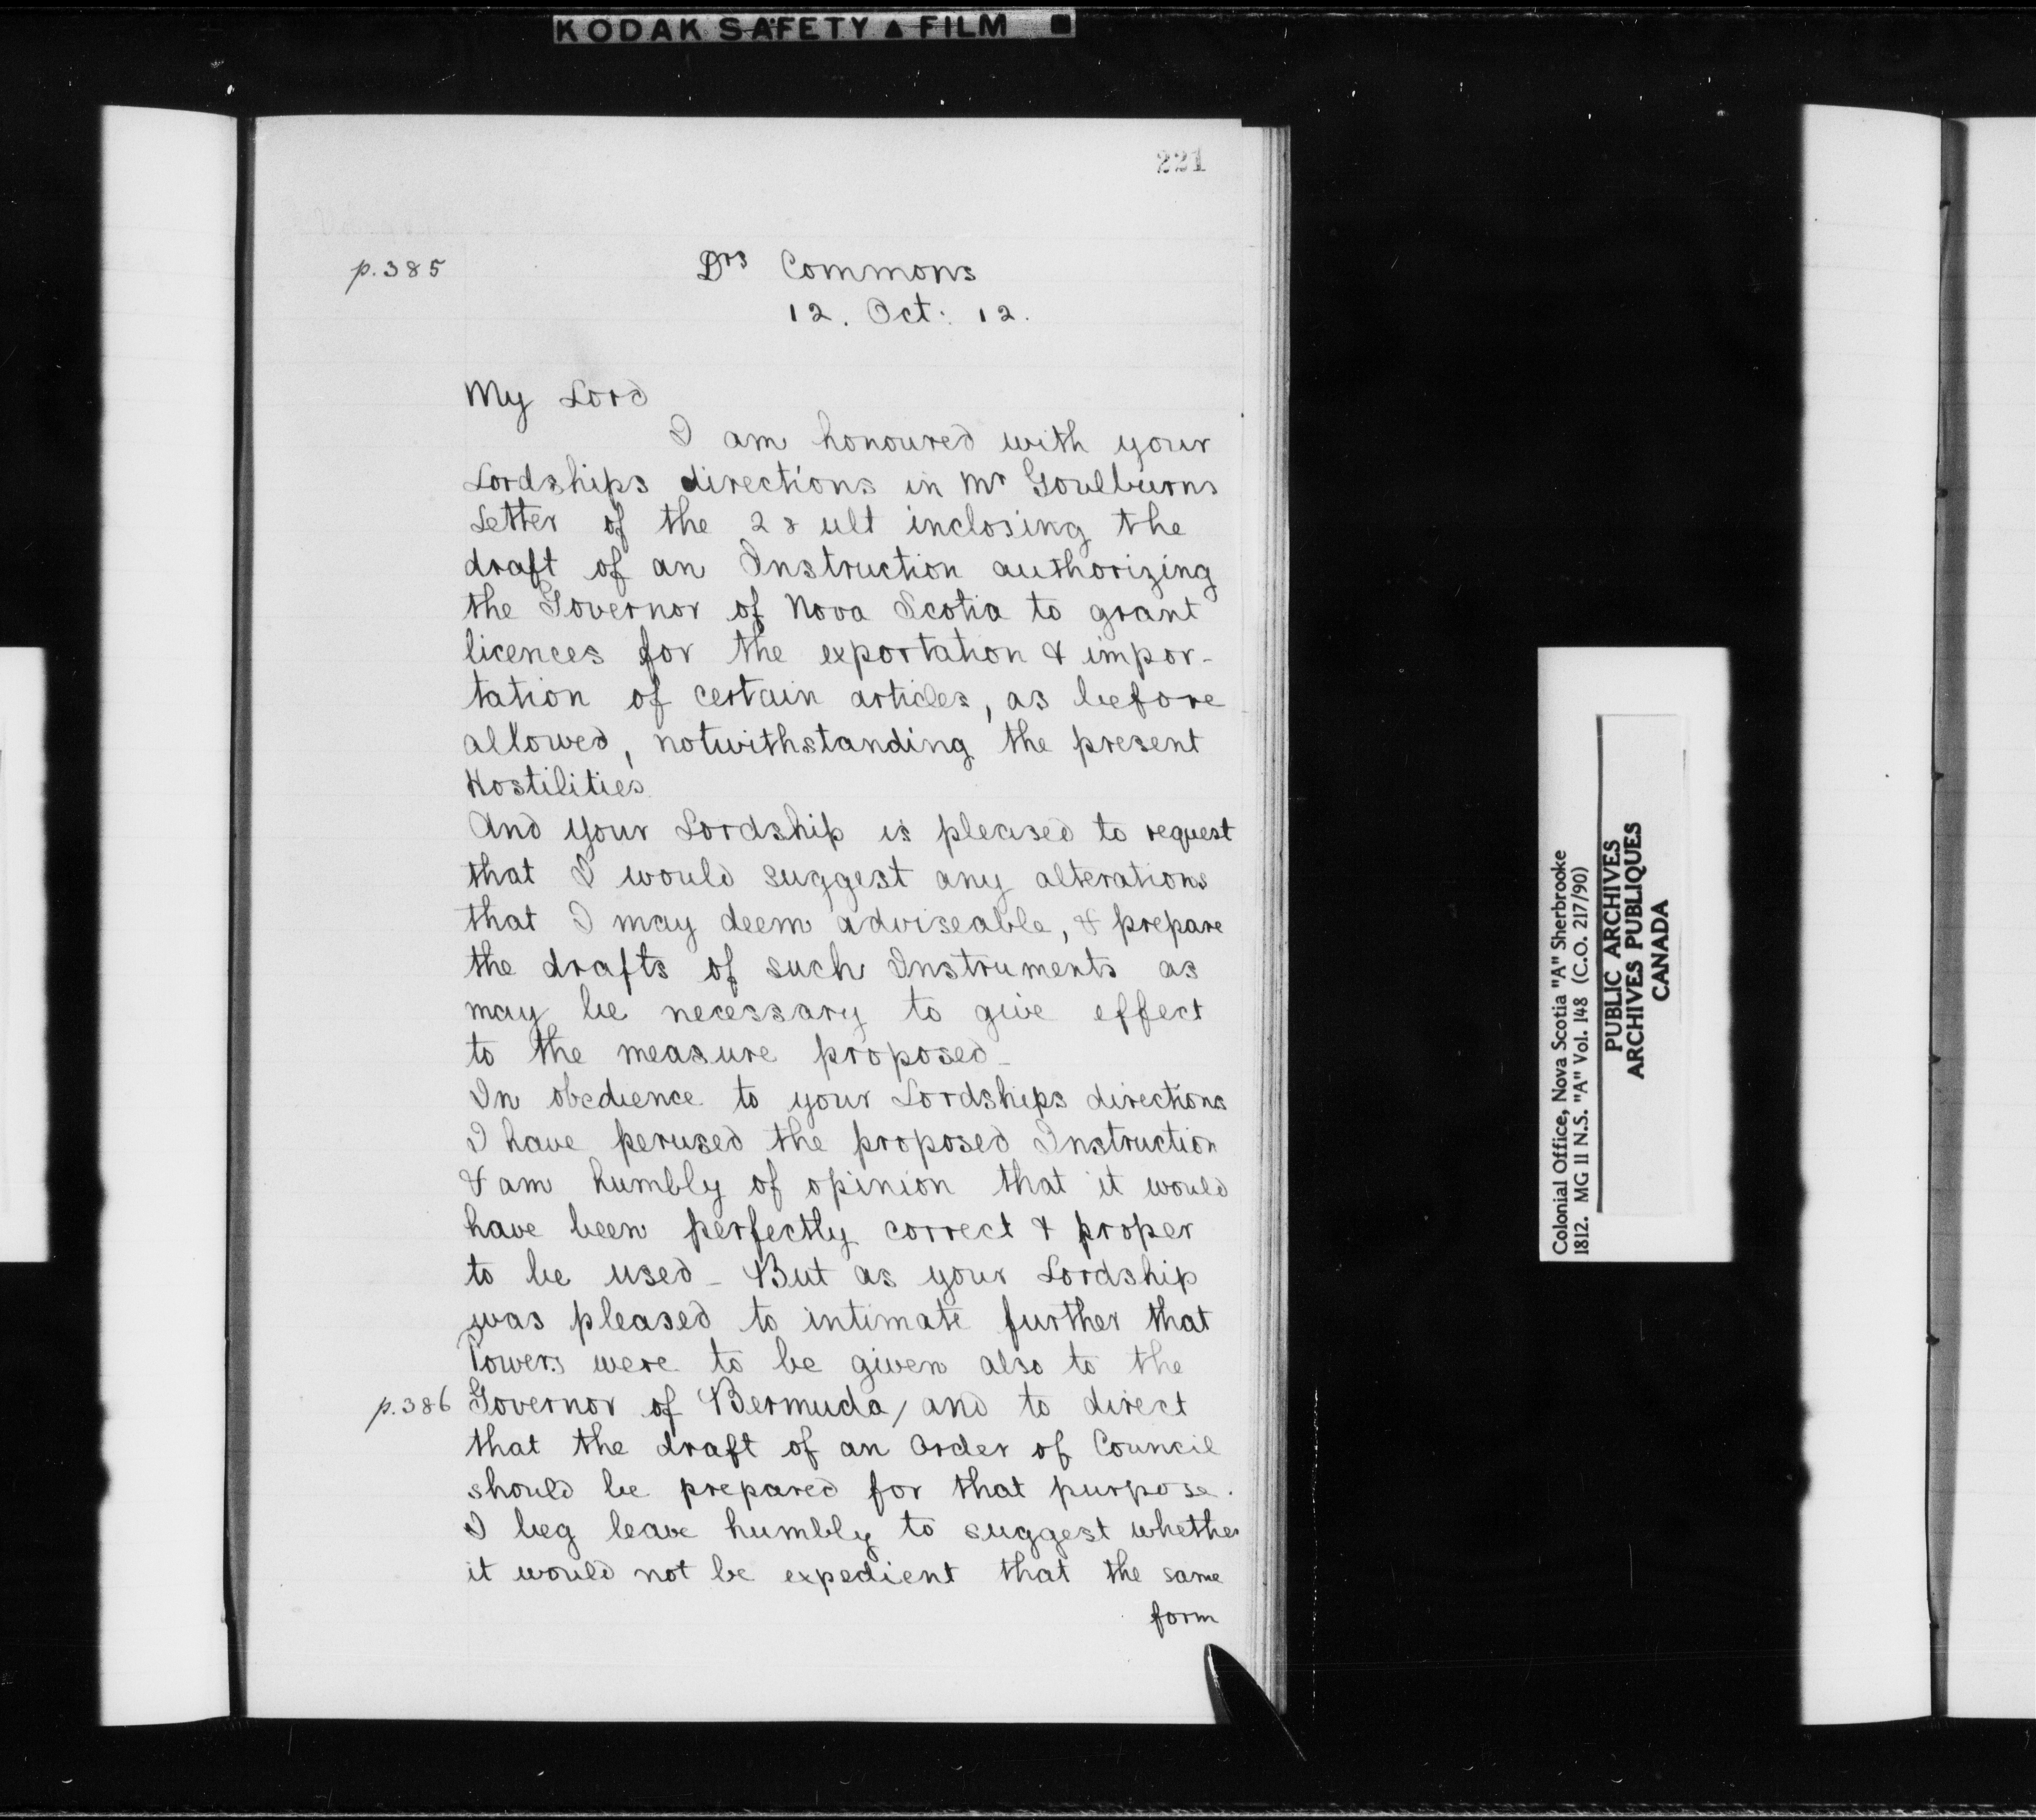 KODAK SAFETY ▲ FILM ■
221
p.385
Drs Commons
12. Oct: 12.
My Lord
I am honoured with your
Lordships directions in Mr Goulburns
Letter of the 28 ult inclosing the
draft of an Instruction authorizing
the Governor of Nova Scotia to grant
licences for the exportation & impor-
tation of certain articles, as before
allowed, notwithstanding the present
Hostilities
And your Lordship is pleased to request
that I would suggest any alterations
that I may deem adviseable, & prepare
the drafts of such Instruments as
may be necessary to give effect
to the measure proposed_
In obedience to your Lordships directions
I have perused the proposed Instruction
& am humbly of opinion that it would
have been perfectly correct & proper
to be used_ But as your Lordship
was pleased to intimate further that
Powers were to be given also to the
p.386 Governor of Bermuda/ and to direct
that the draft of an Order of Council
should be prepared for that purpose.
I beg leave humbly to suggest whether
it would not be expedient that the same
form
Colonial Office, Nova Scotia "A" Sherbrooke
1812. MG 11 N.S. "A" Vol. 148 (C.O. 217/90)
PUBLIC ARCHIVES
ARCHIVES PUBLIQUES
CANADA